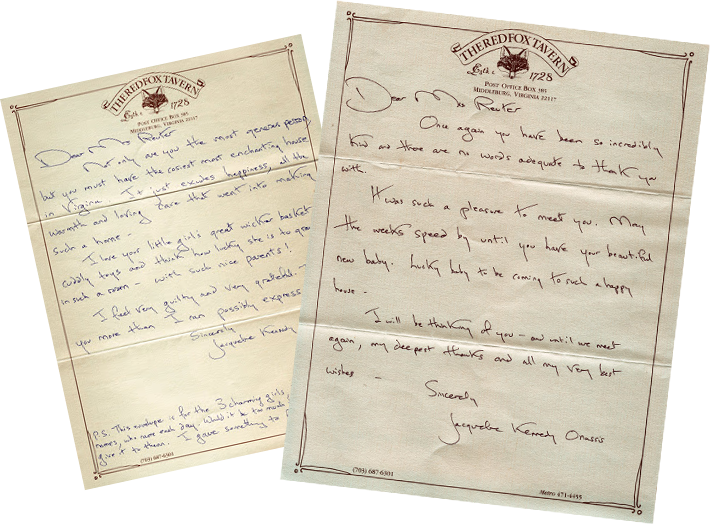 THE RED FOX TAVERN
Estb. 1728
POST OFFICE BOX 385
MIDDLEBURG, VIRGINIA 22117
Dear Mrs Reuter
Not only are you the most generous person,
but you must have the cosiest most enchanting house
in Virginia. It just exudes happiness, all the
warmth and loving care that went into making
such a home -
I love your little girl's great wicker basket
cuddly toys and think how lucky she is to
in such a room - with such nice parents!
I feel very guilty and very grateful -
you more than I can possibly express
Sincerely
Jacqueline Kennedy
P.S. This envelope is for the 3 charming girls
names, who came each day. Would it be too much
give it to them. I gave something to
(703) 687-6301
THE RED FOX TAVERN
Estb. 1728
POST OFFICE BOX 385
MIDDLEBURG, VIRGINIA 22117
Dear Mrs Reuter
Once again you have been so incredibly
kind and there are no words adequate to thank you
with.
It was such a pleasure to meet you. May
the weeks speed by until you have your beautiful
new baby. Lucky baby to be coming to such a happy
house -
I will be thinking of you - and until we meet
again, my deepest thanks and all my very best
wishes -
Sincerely
Jacqueline Kennedy Onassis
(703) 687-6301
Metro 471-4455